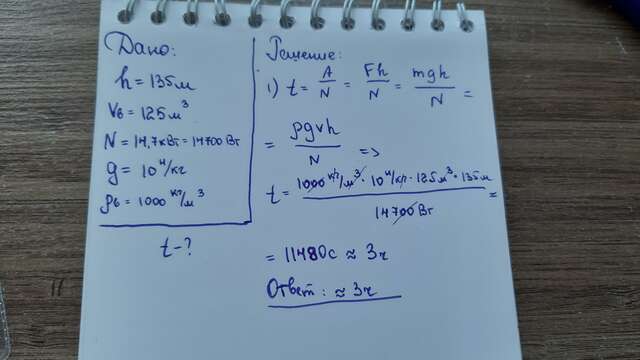 Дано:
h = 135м
Vв = 125м³
N = 14,7кВт = 14700 Вт
g = 10 Н/кг
ρв = 1000 кг/м³
t - ?
Решение:
1) t = A/N = Fh/N = mgh/N =
= ρgvh/N =>
t = 1000 кг/м³ · 10 Н/кг · 125м³ · 135м / 14700 Вт =
= 11480с ≈ 3ч
Ответ: ≈ 3ч